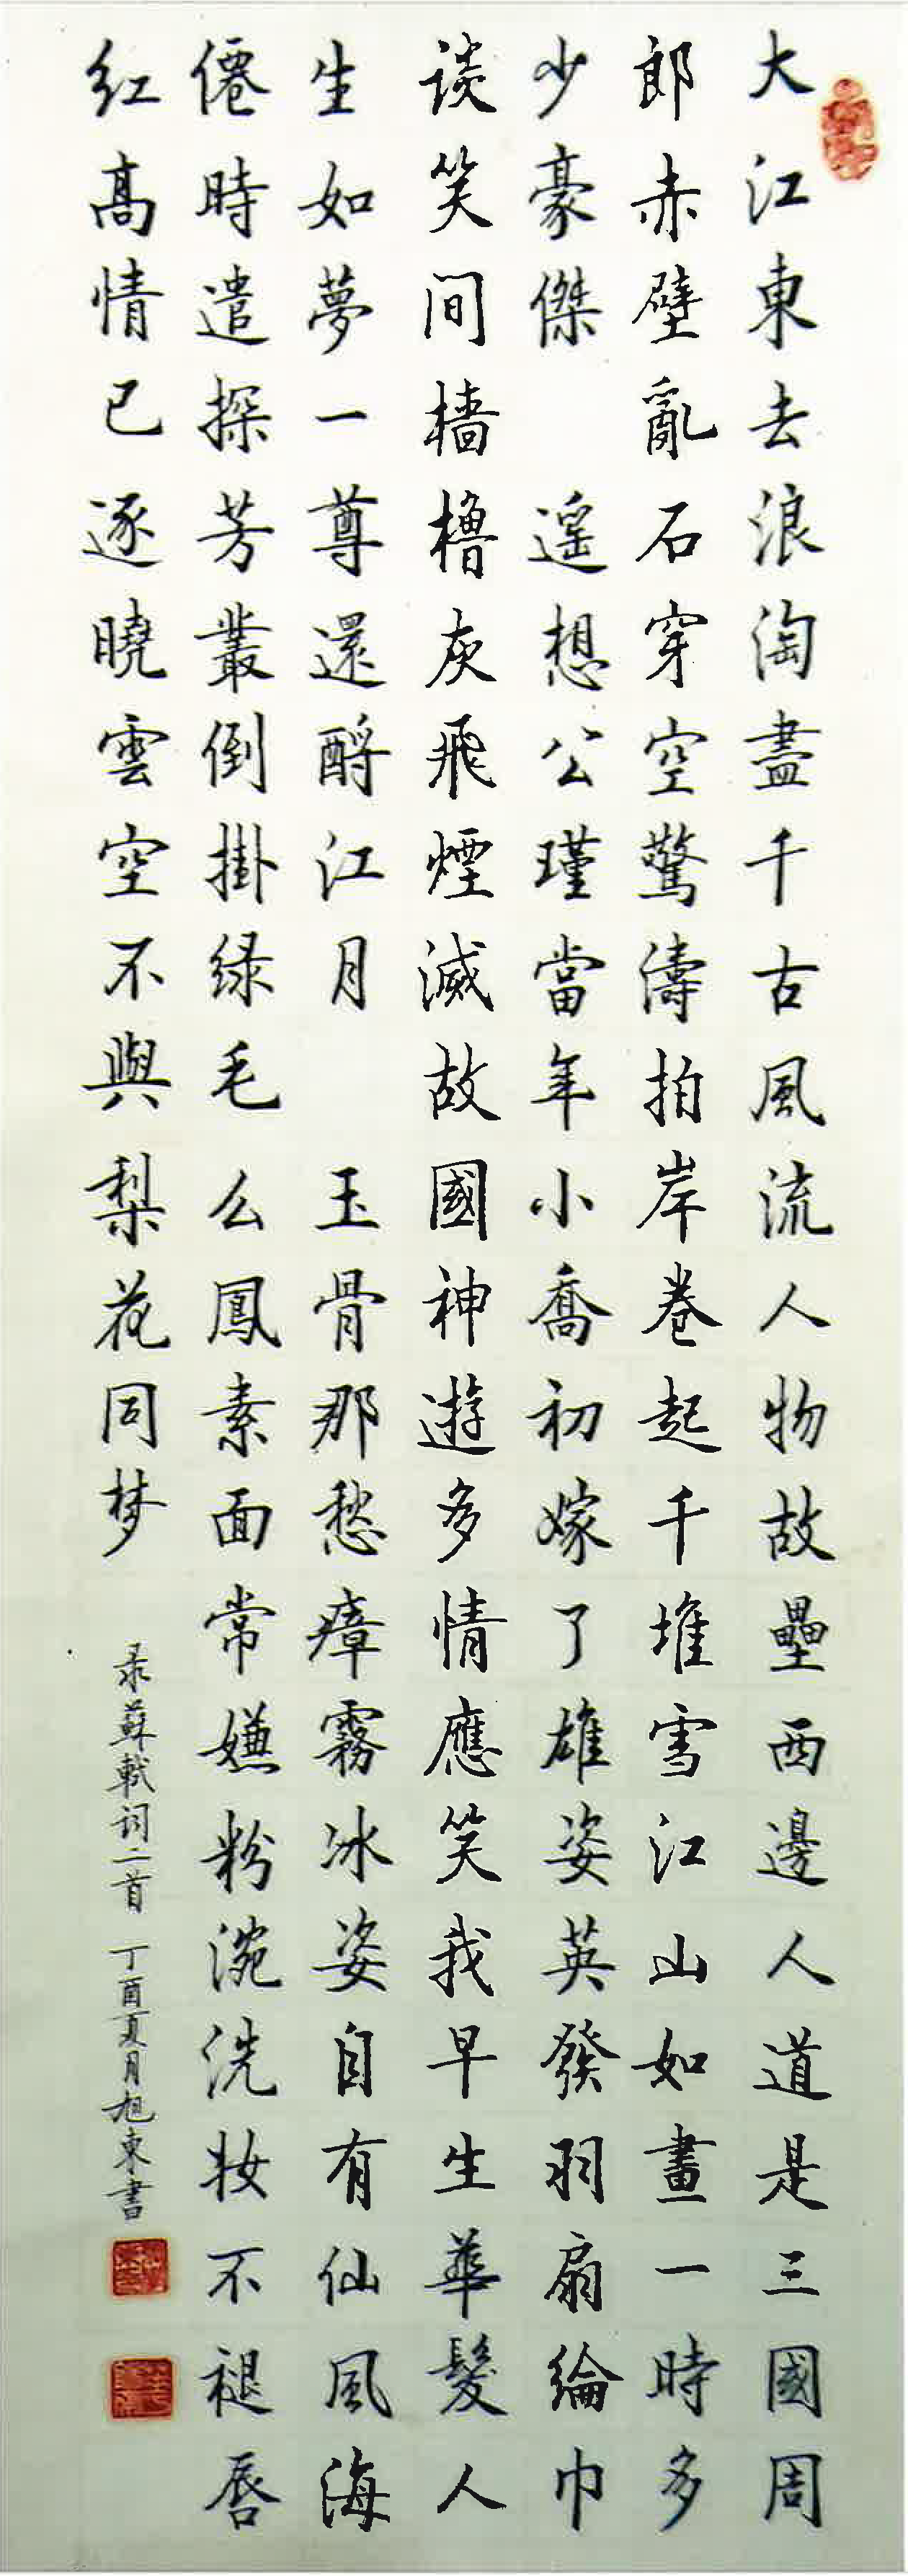 大江東去浪淘盡千古風流人物故壘西邊人道是三國周
郎赤壁亂石穿空驚濤拍岸卷起千堆雪江山如畫一時多
少豪傑 遥想公瑾當年小喬初嫁了雄姿英發羽扇綸巾
谈笑间檣櫓灰飛煙滅故國神遊多情應笑我早生華髮人
生如夢一尊還酹江月 玉骨那愁瘴霧冰姿自有仙風海
僊時遣探芳叢倒掛绿毛么鳳素面常嫌粉涴洗妝不褪唇
红高情已逐曉雲空不與梨花同梦
录蘇軾词二首 丁酉夏月旭東書